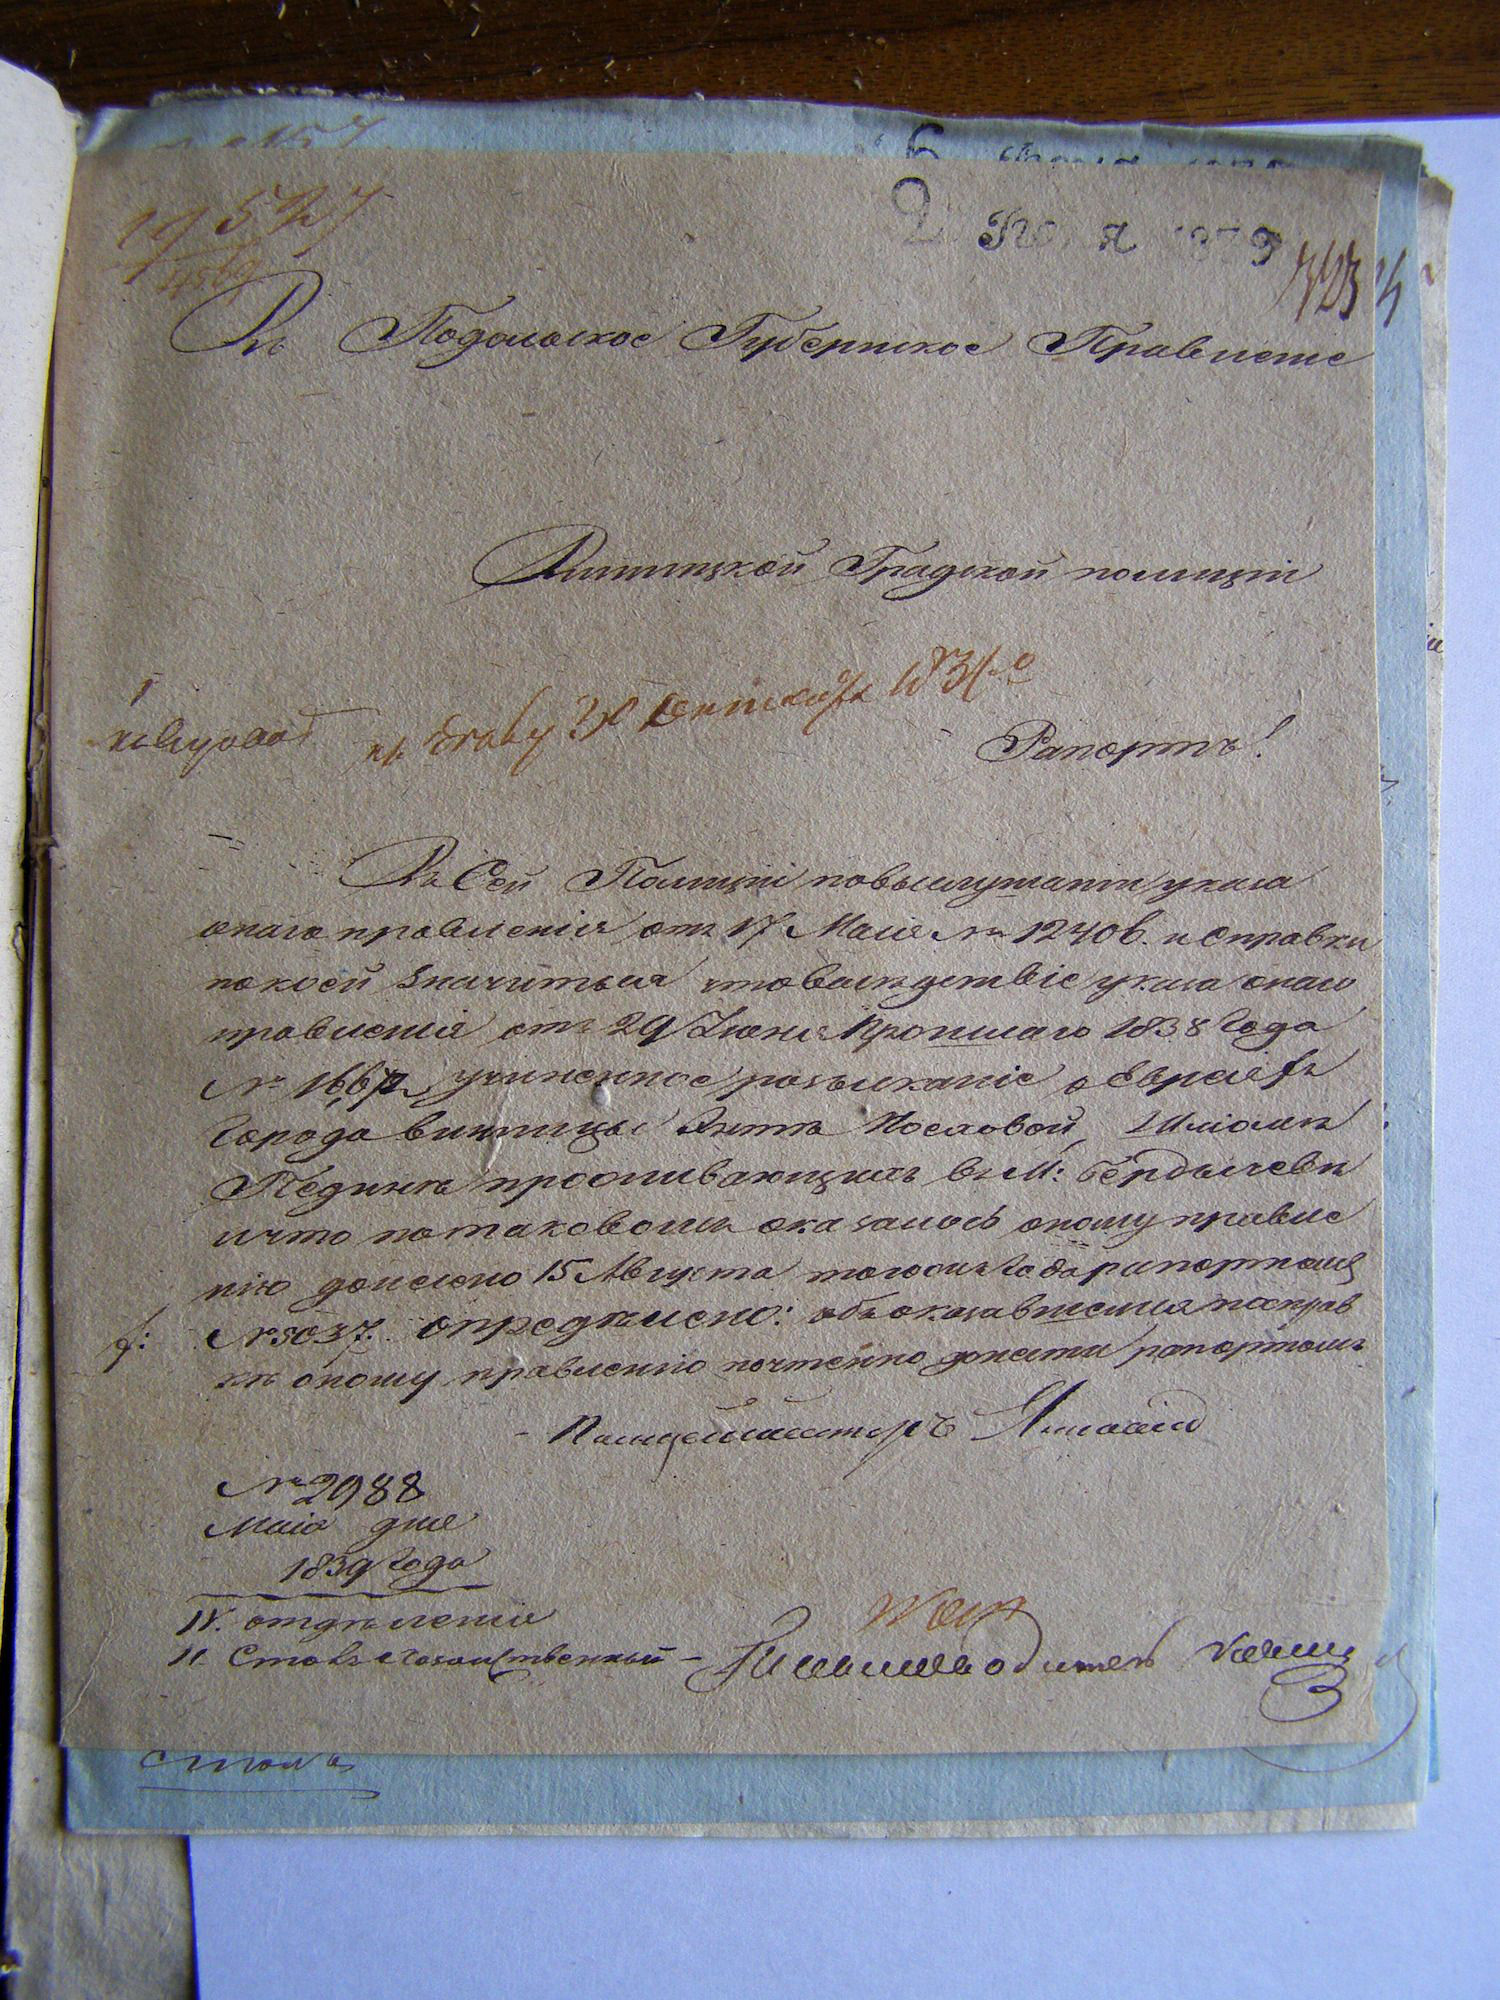 2 я 1839
527
Въ Подольское Губернское Правленіе
Винницкой Градской полиціи
Рапортъ!
Въ Сей Полиціи повыслушаніи указа
онаго правленія отъ 17 Маія № 12406. и Справки
покоей значитъся чтовъслѣдствіе указа онаго
правленія отъ 29 Іюня прошлаго 1838 Года
№ учиненное розысканіе о Евреяхъ
Города винницы Янтѣ Иосковой, Шліомѣ
Пединѣ проживающихъ въ М: Бердычевѣ
ичто потаковомъ оказалось оному правле
нію донесено 15 Августа тогожъ Года рапортомъ
№ 5037. опредѣлено: объоказавшемся посправ
кѣ оному правленію почтенно донести рапортомъ
Полицеймейстеръ
№ 2988
Маія дня
1839 Года
IV. отдѣленіе
II. Столъ хозяйственный
Письмоводитель
столъ